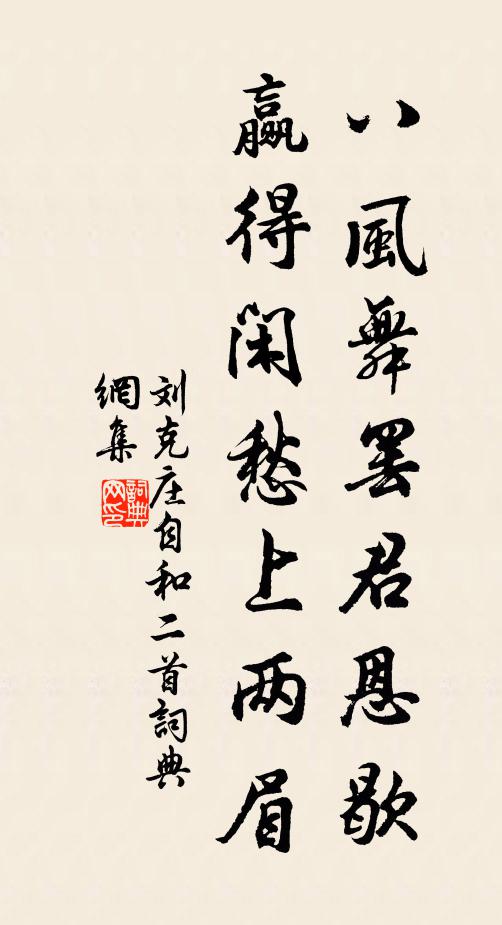 八風舞罢君恩歇
贏得闲愁上两眉
刘克庄自和二首詞典
網集
詞典網印